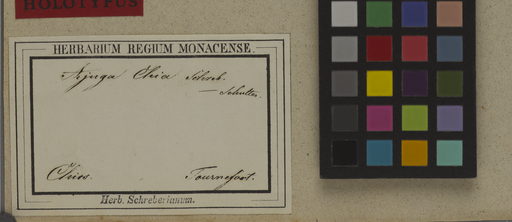 HOLOTYPUS
HERBARIUM REGIUM MONACENSE.
Ajuga Chia Schreb.
— Schultes.
Chios. Tournefort.
Herb. Schreberianum.